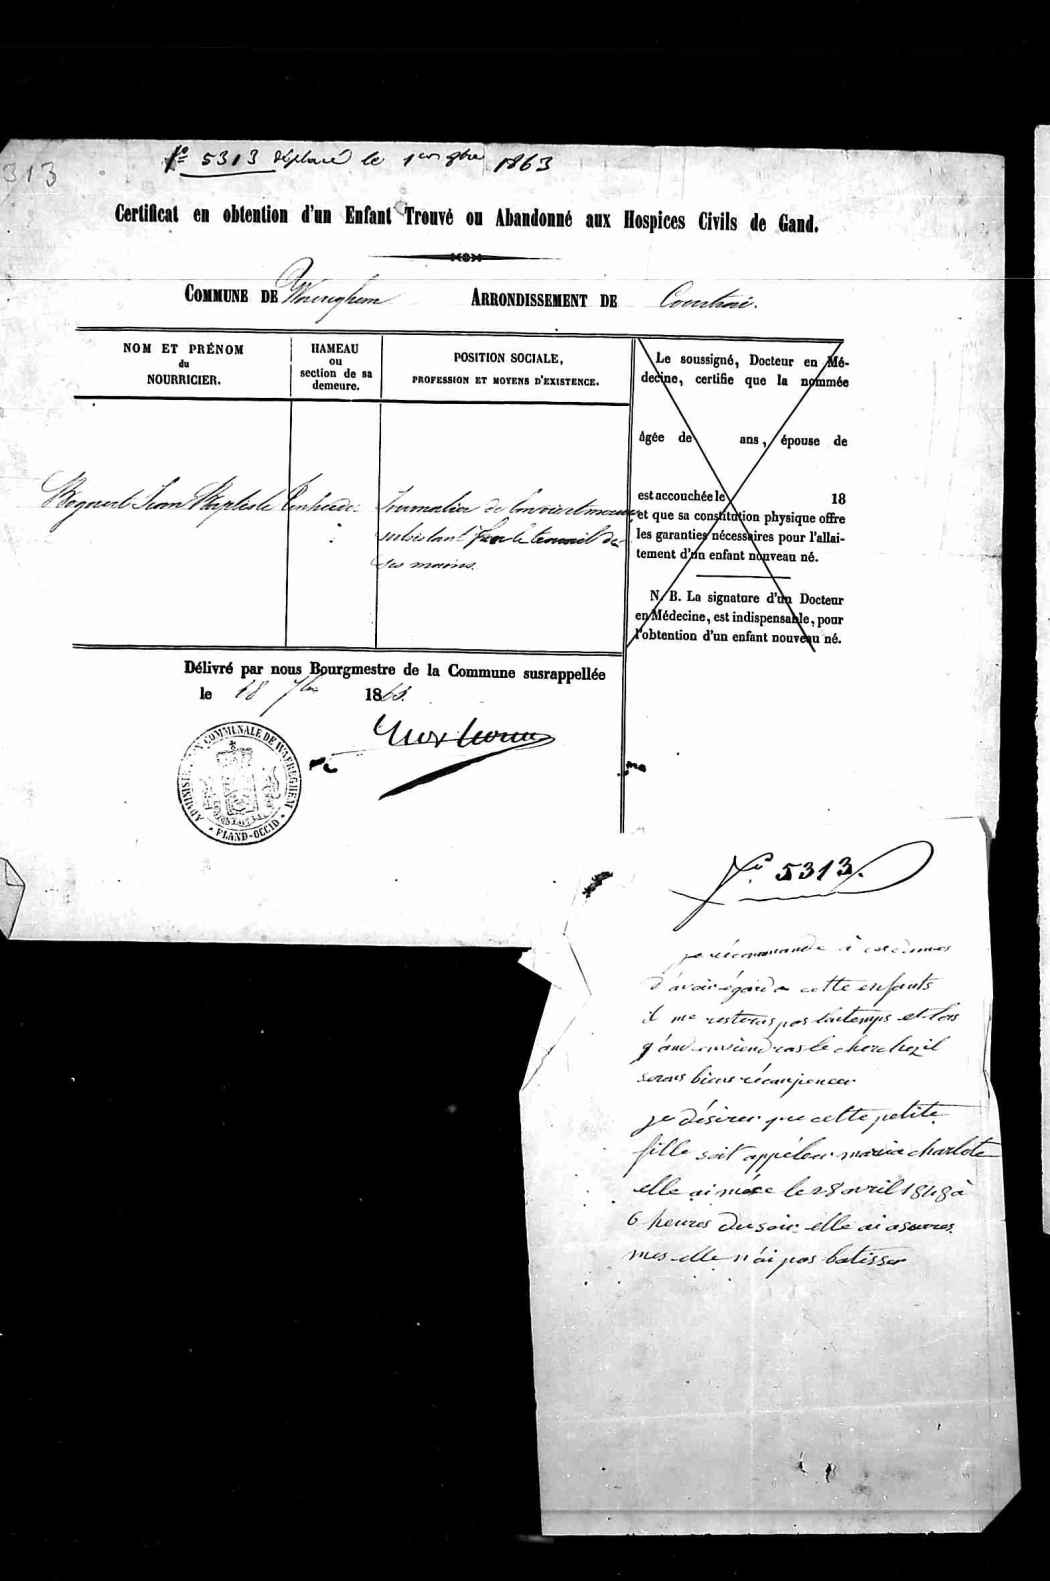 313
N° 5313 déplacé le 1er 9bre 1863
Certificat en obtention d'un Enfant Trouvé ou Abandonné aux Hospices Civils de Gand.
COMMUNE DE Waereghem ARRONDISSEMENT DE Courtrai.
NOM ET PRÉNOM
du
NOURRICIER.
HAMEAU
ou
section de sa
demeure.
POSITION SOCIALE,
PROFESSION ET MOYENS D'EXISTENCE.
Bogaert Jean Baptiste
Journalier de
subsistant par le travail de
ses mains.
Le soussigné, Docteur en Mé-
decine, certifie que la nommée
âgée de ans, épouse de
est accouchée le 18
et que sa constitution physique offre
les garanties nécessaires pour l'allai-
tement d'un enfant nouveau né.
N. B. La signature d'un Docteur
en Médecine, est indispensable, pour
l'obtention d'un enfant nouveau né.
Délivré par nous Bourgmestre de la Commune susrappellée
le 18 7bre 1863.
ADMINISTRATION COMMUNALE DE WAEREGHEM
FLAND-OCCID
N° 5313.
je récommande à ces dames
d'avoir égard a cette enfants
il ne resteras pas lontemps et lors
q'and on viendras le cherchez il
seras biens récompencer
je désirer que cette petite
fille soit appéleer maria charlote
elle ai née le 28 avril 1848 à
6 heures du soir elle ai
mes elle n'ai pas batisser